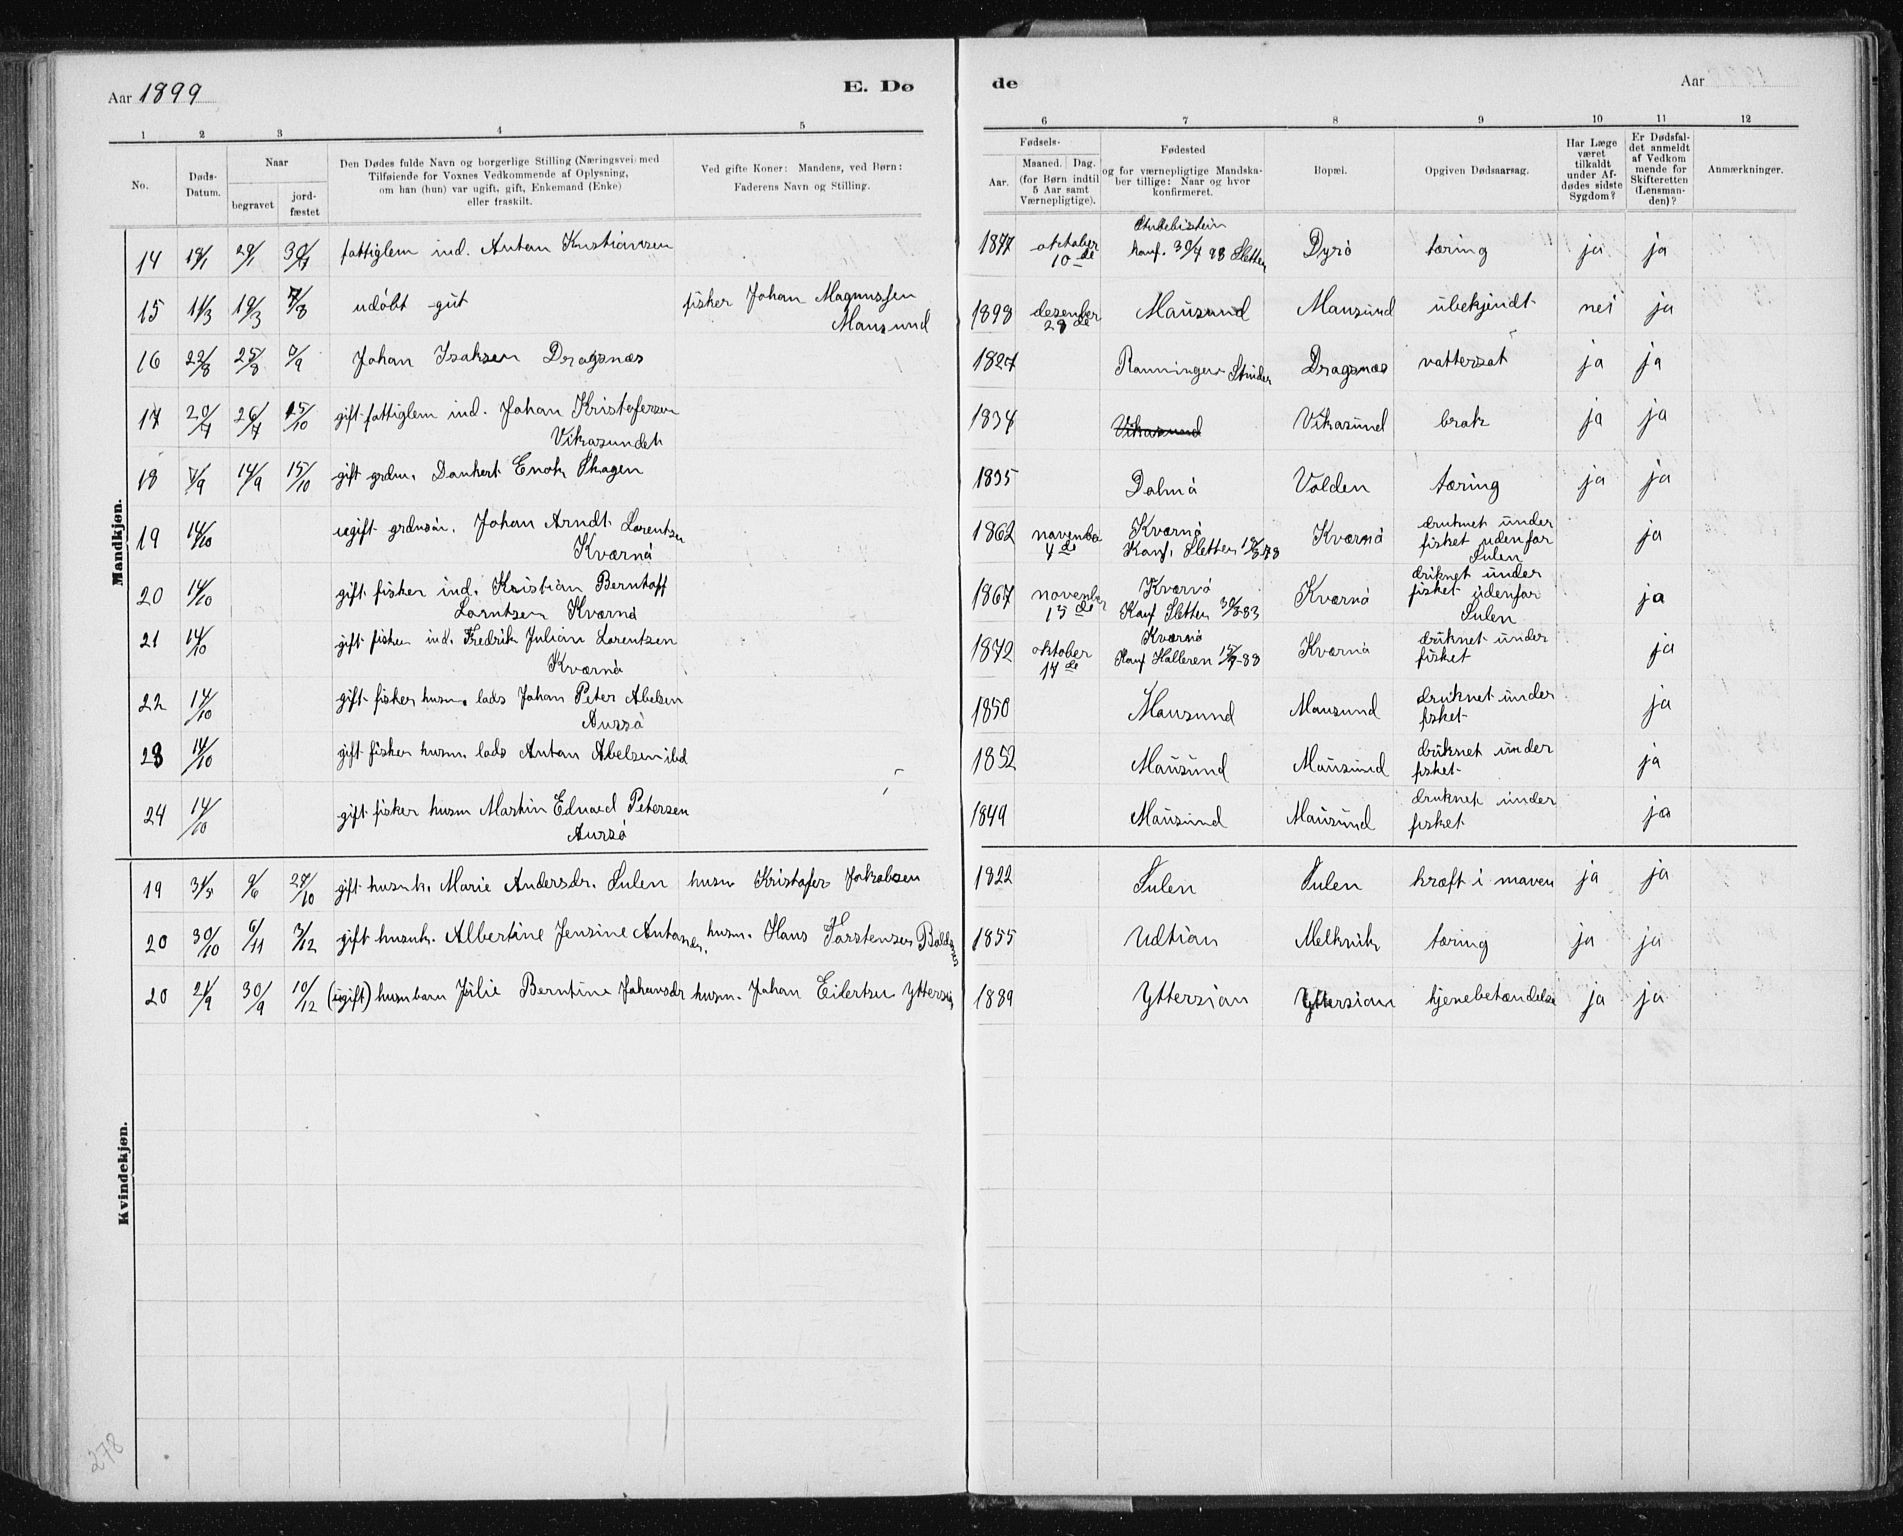 Aar 1899
E. Dø
de
Aar
1 2 3 4 5
6 7 8 9 10 11 12
No.
Døds-Datum.
Naar
begravet
jordfæstet
Den Dødes fulde Navn og borgerlige Stilling (Næringsvei) med
Tilføiende for Voxnes Vedkommende af Oplysning,
om han (hun) var ugift, gift, Enkemand (Enke)
eller fraskilt.
Ved gifte Koner: Mandens, ved Børn:
Faderens Navn og Stilling.
Fødsels-
Aar.
Maaned. Dag.
(for Børn indtil
5 Aar samt
Værnepligtige).
Fødested
og for værnepligtige Mandska-
ber tillige: Naar og hvor
konfirmeret.
Bopæl.
Opgiven Dødsaarsag.
Har Læge
været
tilkaldt
under Af-
dødes sidste
Sygdom?
Er Dødsfal-
det anmeldt
af Vedkom
mende for
Skifteretten
(Lensman-
den)?
Anmærkninger.
Mandkjøn.
14 19/1 29/1 30/7 fattiglem ind. Anton Kristiansen 1877 oktober 10de konf. 30/7 98 Sletten Dyrö tæring ja ja
15 11/3 19/3 7/8 udöbt gut fisker Johan Magnussen Mausund 1898 desember 28de Mausund Mausund ubekjendt nei ja
16 22/8 25/8 /9 Johan Isaksen Dragsnæs 1827 Ranningen Dragsnæs vattersot ja ja
17 20/7 26/7 15/10 gift fattiglem ind. Johan Kristofersen Vikasundet 1834 Vikasund Vikasund brok ja ja
18 7/9 14/9 15/10 gift grdm. Dankert Enok Skagen 1835 Dolmö Volden tæring ja ja
19 14/10 ugift grdmsön. Johan Arndt Lorentsen Kværnö 1862 november 4de Kværnö Konf. Sletten 18/8 78 Kværnö druknet under fisket udenfor Sulen ja
20 14/10 gift fisker ind. Kristian Berntoft Lorntsen Kværnö 1867 november 15de Kværnö Konf Sletten 30/8-83 Kværnö druknet under fisket udenfor Sulen ja
21 14/10 gift fisker ind. Fredrik Julian Lorentzen Kværnö 1872 oktober 14de Kværnö Konf Halleren 15/7-88 Kværnö druknet under fisket ja
22 14/10 gift fisker husm. lods Johan Peter Abelsen Aursö 1850 Mausund Mausund druknet under fisket ja
23 14/10 gift fisker husm. lods Anton Abelsen ibd 1852 Mausund Mausund druknet under fisket ja
24 14/10 gift fisker husm Martin Eduard Petersen Aursö 1849 Mausund Mausund druknet under fisket ja
Kvindekjøn.
19 31/5 9/6 27/10 gift husmk. Marie Andersdr. Sulen husm Kristofer Jakobsen 1822 Sulen Sulen kræft i maven ja ja
20 30/10 6/11 3/12 gift husmk. Albertine Jensine Antonsen. husm. Hans Torstensen 1855 Udtian Melkvik tæring ja ja
20 21/9 30/9 10/12 (ugift) husmbarn Julie Berntine Johansdr husm. Johan Eilertsen Yttersian 1889 Yttersian Yttersian hjenebetændelse ja ja
278